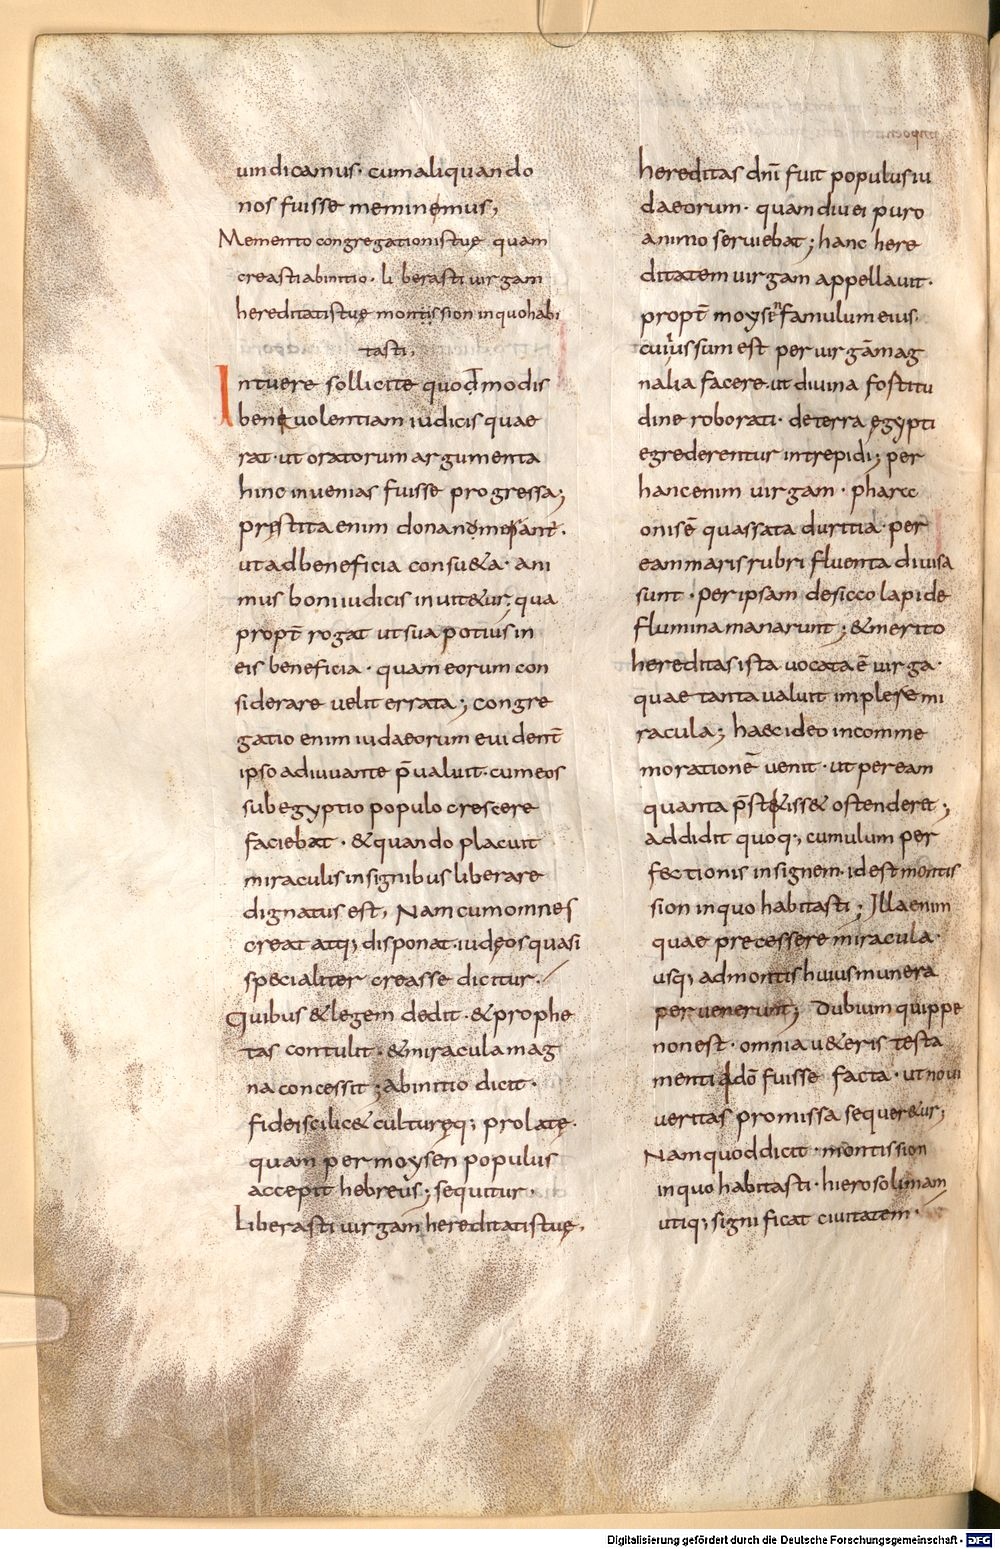 uindicamus· cum aliquando
nos fuisse meminemus,
Memento congregationis tuę quam
creasti ab initio· liberasti uirgam
hereditatis tuę montis sion in quo habi
tasti,
Intuere sollicite quod modis
beneuolentiam iudicis quae
rat· ut oratorum argumenta
hinc inuenias fuisse progressa;
pręstita enim
ut ad beneficia consu&a· ani
mus boni iudicis inuit&ur; qua
propt̄ rogat ut sua potius in
eis beneficia· quam eorum con
siderare uelit errata; congre
gatio enim iudaeorum euident̄
ipso adiuuante p̄ualuit· cum eos
sub egyptio populo crescere
faciebat· & quando placuit
miraculis insignibus liberare
dignatus est, Nam cum omnes
creat atq; disponat· iudęos quasi
specialiter creasse dicitur·
Quibus & legem dedit· & prophe
tas contulit· & miracula mag
na concessit; ab initio dicit·
fidei scilic& culturęq; prolatę·
quam per moysen populus
accepit hebreus; sequitur·
Liberasti uirgam hereditatis tuę,
hereditas dn̄i fuit populus iu
daeorum· quamdiu ei puro
animo seruiebat; hanc here
ditatem uirgam appellauit·
propt̄ moysen famulum eius·
cui iussum est per uirgā mag
nalia facere· ut diuina fortitu
dine roborati· de terra ęgypti
egrederentur intrepidi; per
hanc enim uirgam· pharao
onis ē quassata duritia· per
eam maris rubri fluenta diuisa
sunt· per ipsam de sicco lapide
flumina manarunt; & merito
hereditas ista uocata ē uirga·
quae tanta ualuit implere mi
racula; haec ideo in comme
morationē uenit· ut per eam
quanta p̄stitiss& ostenderet;
addidit quoq; cumulum per
fectionis insignem· id est montis
sion in quo habitasti; Illa enim
quae precessere miracula·
usq; ad montis huius munera
peruenerunt; Dubium quippe
non est· omnia u&eris testa
menti fuisse facta· ut noui
ueritas promissa sequer&ur;
Nam quod dicit· montis sion
in quo habitasti· hierosolimam
utiq; significat ciuitatem·
Digitalisierung gefördert durch die Deutsche Forschungsgemeinschaft - DFG